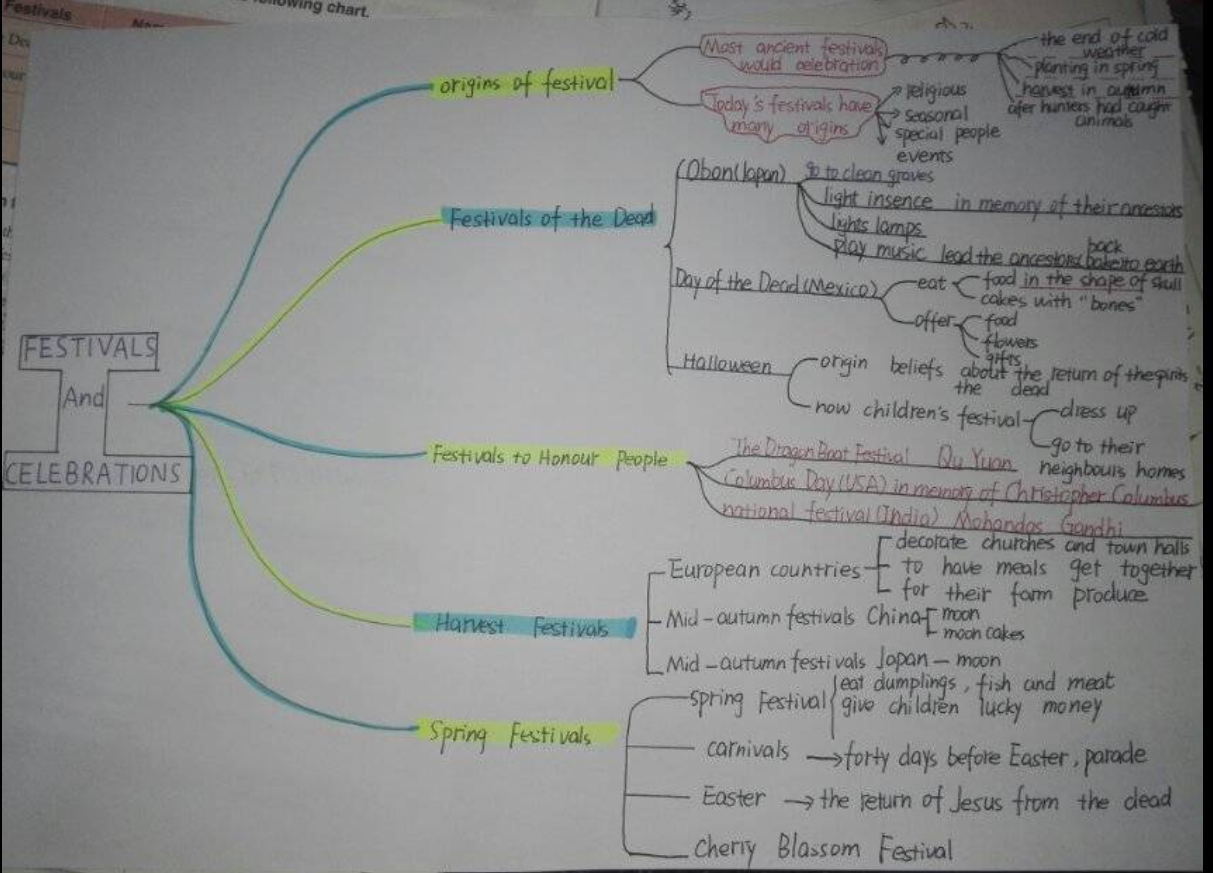 Festivals
following chart.
FESTIVALS
And
CELEBRATIONS
origins of festival
Most ancient festivals
would celebration
the end of cold
weather
planting in spring
harvest in autumn
afer hunters had caught
animals
Today's festivals have
many origins
religious
seasonal
special people
events
Festivals of the Dead
Obon(Japan) go to clean graves
light insence in memory of their ancestors
lights lamps
play music lead the ancestors back to earth
Day of the Dead (Mexico)
eat
food in the shape of skull
cakes with "bones"
offer
food
flowers
gifts
Halloween
origin beliefs about the return of the spirits
the dead
now children's festival
dress up
go to their
neighbours homes
Festivals to Honour People
The Dragon Boat Festival Qu Yuan
Columbus Day (USA) in memory of Christopher Columbus
national festival (India) Mohandas Gandhi
Harvest Festivals
European countries
decorate churches and town halls
to have meals get together
for their farm produce
Mid-autumn festivals China
moon
moon cakes
Mid-autumn festivals Japan - moon
Spring Festivals
spring Festival
eat dumplings, fish and meat
give children lucky money
carnivals → forty days before Easter, parade
Easter → the return of Jesus from the dead
Cherry Blassom Festival